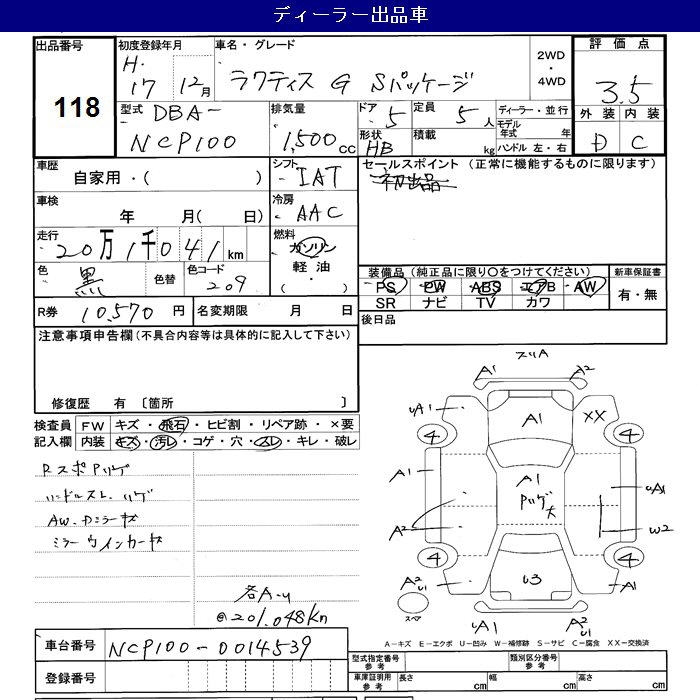 ディーラー出品車
出品番号 118
初度登録年月 H. 17年 12月
車名・グレード ラクティス G Sパッケージ
2WD・4WD
評価点 3.5
外装 内装
D C
型式 DBA- NCP100
排気量 1,500 cc
ドア 5
形状 HB
定員 5人
積載 kg
ディーラー・並行
モデル年式 年
ハンドル 左・右
車歴 自家用・( )
シフト IAT
セールスポイント (正常に機能するものに限ります)
初出品
車検 年 月( 日)
冷房 AAC
走行 20万1千041km
燃料 ガソリン 軽油 ( ・ )
色 黒 色替
色コード 209
装備品 (純正品に限り○をつけてください)
PS PW ABS エアB AW
SR ナビ TV カワ
新車保証書 有・無
R券 10,570 円
名変期限 月 日
後日品
注意事項申告欄(不具合内容等は具体的に記入して下さい)
修復歴 有 〔箇所 〕
検査員記入欄
FW キズ・飛石・ヒビ割・リペア跡・×要
内装 キズ・汚レ・コゲ・穴・スレ・キレ・破レ
RスポPハゲ
ハンドルスレ、ハゲ
AW・Dミラーキズ
ミラーウインカーキズ
各A-U
@201,048km
スリA
A1 A2
UA1 A1 XX
4 4
A1 A1 UA1
Pハゲ大
A2 W2
4 4
A2 U1 U3 A1
スペア
UA1 A2 U1
A−キズ E−エクボ U−凹み W−補修跡 S−サビ C−腐食 XX−交換済
車台番号 NCP100-0014539
登録番号
型式指定番号 参考
類別区分番号 参考
車庫証明用 参考 長さ cm 幅 cm 高さ cm